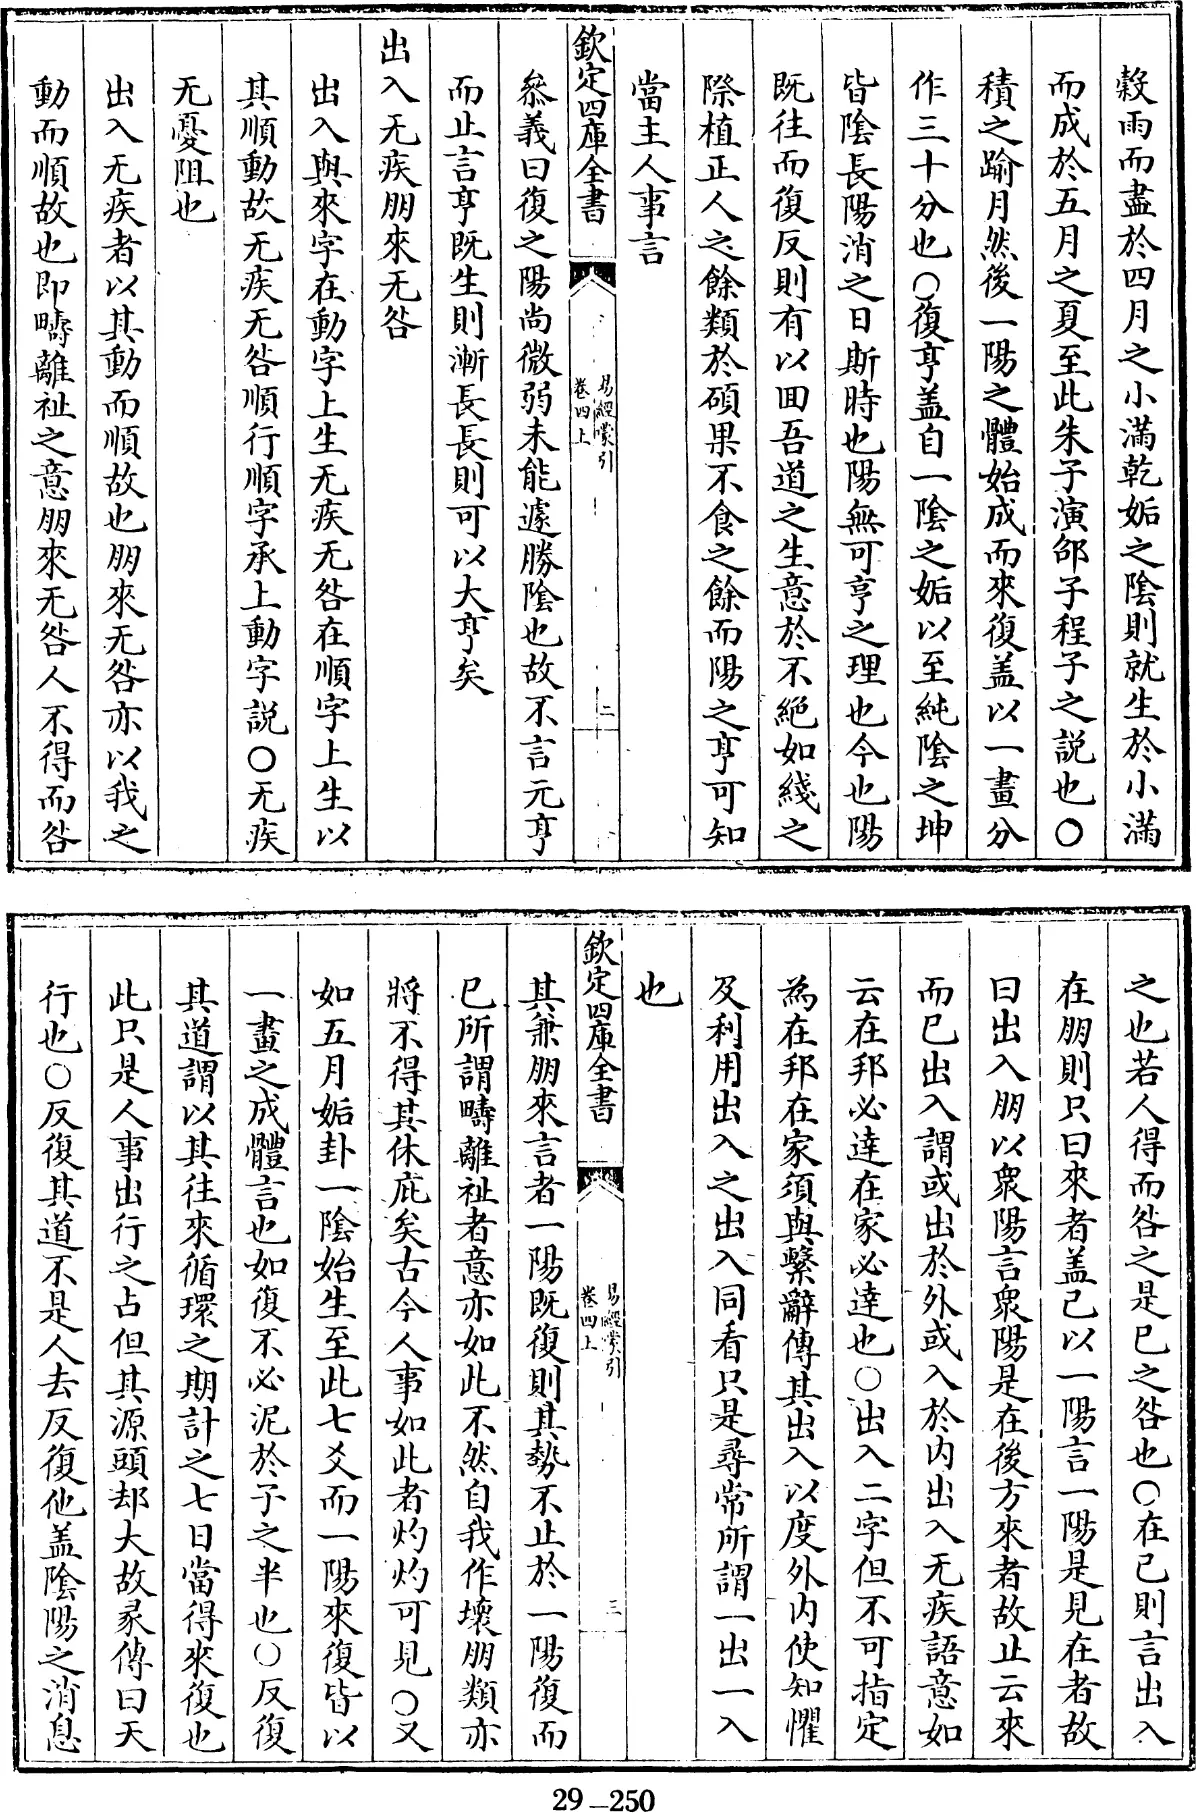 穀雨而盡於四月之小滿乾姤之陰則就生於小滿
而成於五月之夏至此朱子演邵子程子之說也○
積之踰月然後一陽之體始成而來復盖以一畫分
作三十分也○復亨盖自一陰之姤以至純陰之坤
皆陰長陽消之日斯時也陽無可亨之理也今也陽
既往而復反則有以回吾道之生意於不絶如綫之
際植正人之餘類於碩果不食之餘而陽之亨可知
當主人事言
欽定四庫全書
易經蒙引
卷四上
二
叅義曰復之陽尚微弱未能遽勝陰也故不言元亨
而止言亨既生則漸長長則可以大亨矣
出入无疾朋來无咎
出入與來字在動字上生无疾无咎在順字上生以
其順動故无疾无咎順行順字承上動字説○无疾
无憂阻也
出入无疾者以其動而順故也朋來无咎亦以我之
動而順故也即疇離祉之意朋來无咎人不得而咎
之也若人得而咎之是已之咎也○在已則言出入
在朋則只曰來者盖己以一陽言一陽是見在者故
曰出入朋以衆陽言衆陽是在後方來者故止云來
而已出入謂或出於外或入於内出入无疾語意如
云在邦必達在家必達也○出入二字但不可指定
為在邦在家須與繫辭傳其出入以度外内使知懼
及利用出入之出入同看只是尋常所謂一出一入
也
欽定四庫全書
易經蒙引
卷四上
三
其兼朋來言者一陽既復則其勢不止於一陽復而
已所謂疇離祉者意亦如此不然自我作壞朋類亦
將不得其休庇矣古今人事如此者灼灼可見○又
如五月姤卦一陰始生至此七爻而一陽來復皆以
一畫之成體言也如復不必泥於子之半也○反復
其道謂以其往來循環之期計之七日當得來復也
此只是人事出行之占但其源頭却大故彖傳曰天
行也○反復其道不是人去反復他盖陰陽之消息
29—250